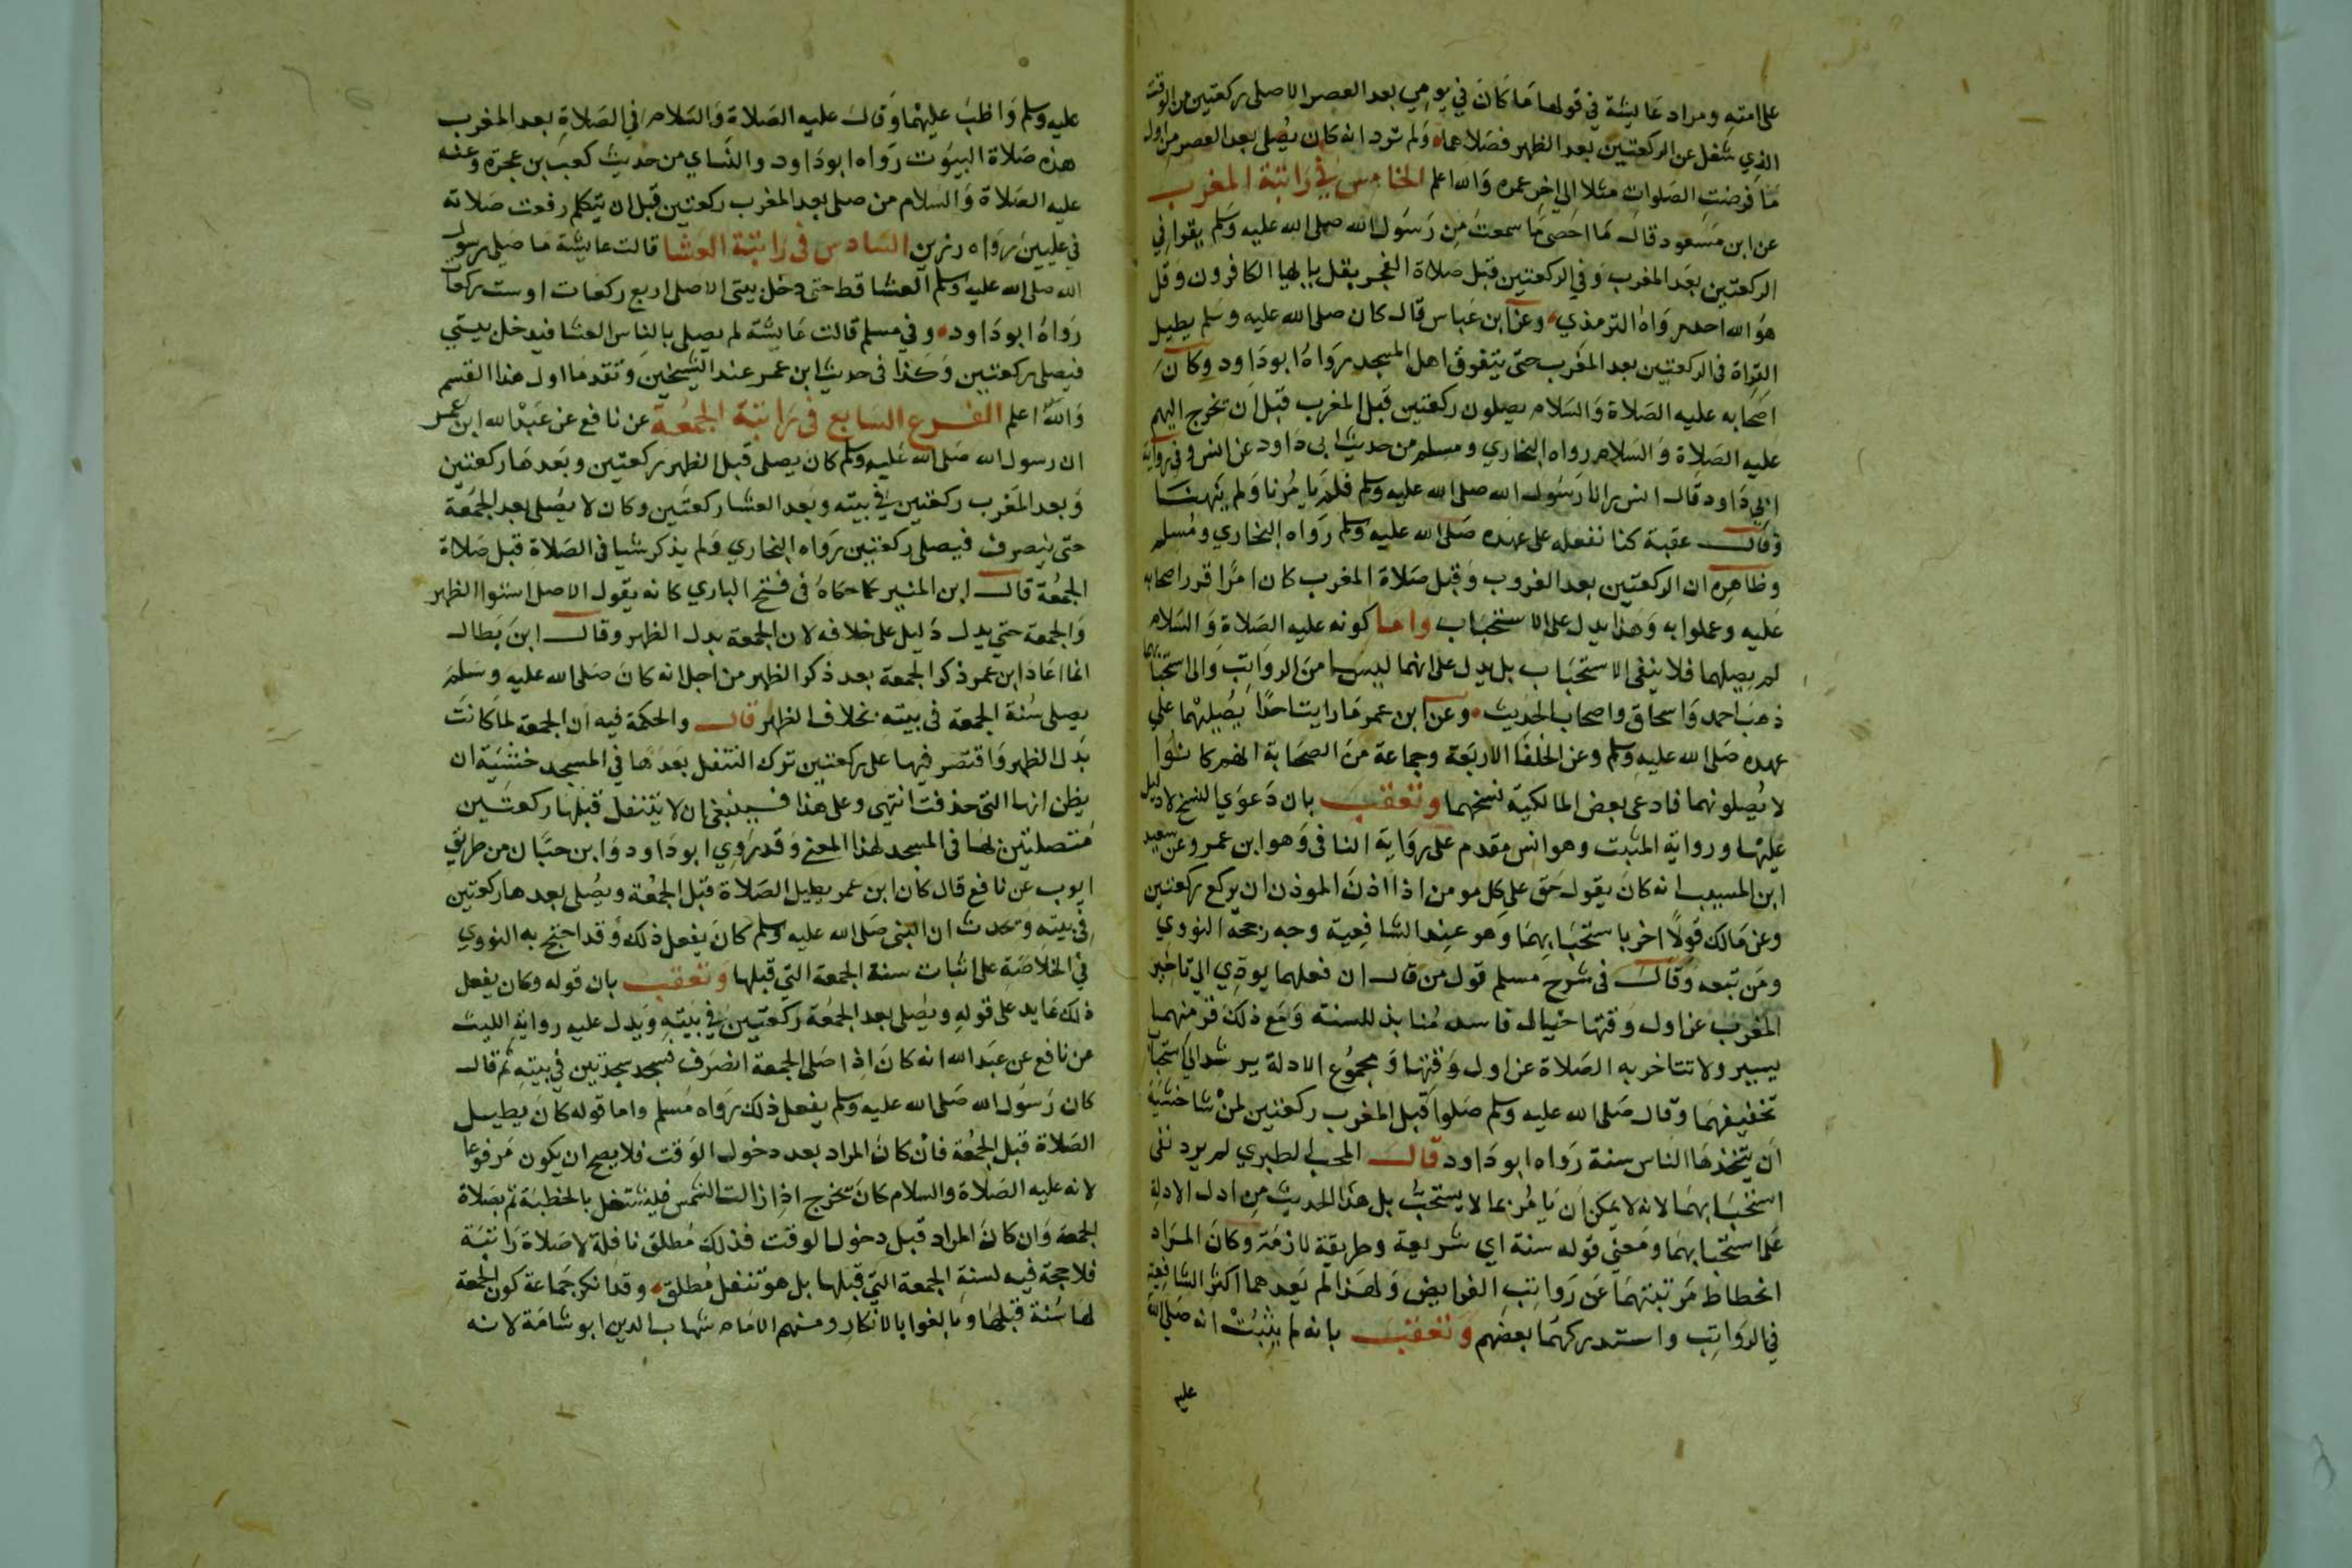 على امته ومراد عايشة في قولها ما كان في يومي بعد العصر الا صلى ركعتين من الوقت
الذي شغل عن الركعتين بعد الظهر فصلاهما ولم ترد انه كان يصلي بعد العصر من اول
ما فرضت الصلوات مثلا الى اخر عمره والله اعلم الخامس في راتبة المغرب
عن ابن مسعود قال ما احصي ما سمعت من رسول الله صلى الله عليه وسلم يقرا في
الركعتين بعد المغرب وفي الركعتين قبل صلاة الفجر بقل يا ايها الكافرون وقل
هو الله احد رواه الترمذي وعن ابن عباس قال كان صلى الله عليه وسلم يطيل
القراة في الركعتين بعد المغرب حتى يتفرق اهل المسجد رواه ابو داود وكان
اصحابه عليه الصلاة والسلام يصلون ركعتين قبل المغرب قبل ان يخرج اليهم
عليه الصلاة والسلام رواه البخاري ومسلم من حديث ابى داود عن انس وفي رواية
ابي داود قال انس رانا رسول الله صلى الله عليه وسلم فلم يامرنا ولم ينهنا
وقال عقبة كنا نفعله على عهده صلى الله عليه وسلم رواه البخاري ومسلم
وظاهره ان الركعتين بعد الغروب وقبل صلاة المغرب كان امرا قرر اصحابه
عليه وعملوا به وهذا يدل على الاستحباب واما كونه عليه الصلاة والسلام
لم يصلهما فلا ينفى الاستحباب بل يدل على انهما ليسا من الرواتب والى استحبابهما
ذهب احمد واسحاق واصحاب الحديث وعن ابن عمر ما رايت احدا يصليهما على
عهده صلى الله عليه وسلم وعن الخلفا الاربعة وجماعة من الصحابة انهم كانوا
لا يصلونهما فادعى بعض المالكية نسخهما وتعقب بان دعوي النسخ لا دليل
عليها ورواية المثبت وهو انس مقدم على رواية النافى وهو ابن عمر وعن سعيد
ابن المسيب انه كان يقول حق على كل مومن اذا اذن الموذن ان يركع ركعتين
وعن مالك قولا اخر باستحبابهما وهو عند الشافعية وجه رجحه النووي
ومن تبعه وقال في شرح مسلم قول من قال ان فعلهما يودي الى تاخير
المغرب عن اول وقتها خيال فاسد منابذ للسنة ومع ذلك فزمنهما
يسير ولا تتاخر به الصلاة عن اول وقتها ومجموع الادلة يرشد الي استحباب
تخفيفهما وقال صلى الله عليه وسلم صلوا قبل المغرب ركعتين لمن شا خشية
ان يتخذها الناس سنة رواه ابو داود قال المحب الطبري لم يرد نفى
استحبابهما لانه لا يمكن ان يامر بما لا يستحب بل هذا الحديث من ادل الادلة
على استحبابهما ومعنى قوله سنة اي شريعة وطريقة لازمة وكان المراد
انحطاط مرتبتهما عن رواتب الفرايض ولهذا لم يعدهما اكثر الشافعية
في الرواتب واستدركهما بعضهم وتعقب بانه لم يثبت انه صلى الله
عليه
عليه وسلم واظب عليهما وقال عليه الصلاة والسلام في الصلاة بعد المغرب
هذه صلاة البيوت رواه ابو داود والنساي من حديث كعب بن عجرة وعنه
عليه الصلاة والسلام من صلى بعد المغرب ركعتين قبل ان يتكلم رفعت صلاته
في عليين رواه رزين السادس في راتبة العشا قالت عايشة ما صلى رسول
الله صلى الله عليه وسلم العشا قط حتى دخل بيتى الا صلى اربع ركعات او ست ركعات
رواه ابو داود وفي مسلم قالت عايشة لم يصلى بالناس العشا فيدخل بيتي
فيصلى ركعتين وكذا فى حديث ابن عمر عند الشيخين وتقدما اول هذا القسم
والله اعلم الفرع السابع في راتبة الجمعة عن نافع عن عبد الله ابن عمر
ان رسول الله صلى الله عليه وسلم كان يصلى قبل الظهر ركعتين وبعدها ركعتين
وبعد المغرب ركعتين في بيته وبعد العشا ركعتين وكان لا يصلى بعد الجمعة
حتى ينصرف فيصلى ركعتين رواه البخاري ولم يذكر شيا فى الصلاة قبل صلاة
الجمعة قال ابن المنير كما حكاه فى فتح الباري كانه يقول الاصل استوا الظهر
والجمعة حتى يدل دليل على خلافه لان الجمعة بدل الظهر وقال ابن بطال
انما اعاد ابن عمر ذكر الجمعة بعد ذكر الظهر من اجل انه كان صلى الله عليه وسلم
يصلى سنة الجمعة فى بيته بخلاف الظهر قال والحكمة فيه ان الجمعة لما كانت
بدل الظهر واقتصر فيها على ركعتين ترك التنفل بعدها في المسجد خشية ان
يظن انها التى حذفت انتهى وعلى هذا فينبغى ان لا يتنفل قبلها ركعتين
متصلتين بها فى المسجد لهذا المعنى وقد روي ابو داود وابن حبان من طريق
ايوب عن نافع قال كان ابن عمر يطيل الصلاة قبل الجمعة ويصلى بعدها ركعتين
في بيته وتحدث ان النبى صلى الله عليه وسلم كان يفعل ذلك وقد احتج به النووي
في الخلاصة على اثبات سنة الجمعة التي قبلها وتعقب بان قوله وكان يفعل
ذلك عايد على قوله ويصلى بعد الجمعة ركعتين في بيته ويدل عليه رواية الليث
عن نافع عن عبد الله انه كان اذا صلى الجمعة انصرف فسجد سجدتين في بيته ثم قال
كان رسول الله صلى الله عليه وسلم يفعل ذلك رواه مسلم واما قوله كان يطيل
الصلاة قبل الجمعة فان كان المراد بعد دخول الوقت فلا يصح ان يكون مرفوعا
لانه عليه الصلاة والسلام كان يخرج اذا زالت الشمس فيشتغل بالخطبة ثم بصلاة
الجمعة وان كان المراد قبل دخول الوقت فذلك مطلق نافلة لا صلاة راتبة
فلا حجة فيه لسنة الجمعة التي قبلها بل هو تنفل مطلق وقد انكر جماعة كون الجمعة
لها سنة قبلها وبالغوا بالانكار ومنهم الامام شهاب الدين ابو شامة لانه